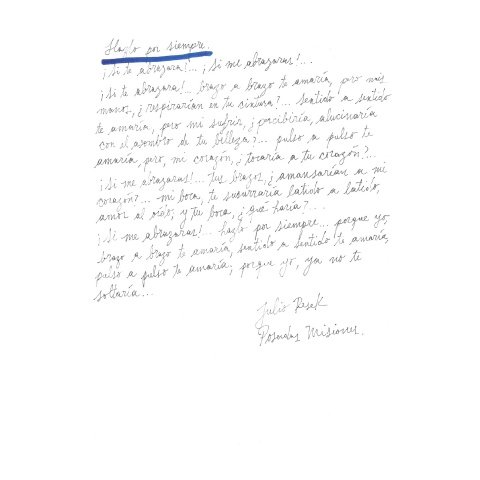 Hazlo por siempre.
¡Si te abrazara!... ¡Si me abrazaras!...
¡Si te abrazara!... brazo a brazo te amaría, pero mis
manos, ¿respirarían en tu cintura?... sentido a sentido
te amaría, pero mi sufrir, ¿percibiría, alucinaría
con el asombro de tu belleza?... pulso a pulso te
amaría, pero, mi corazón, ¿tocaría a tu corazón?...
¡Si me abrazaras!... tus brazos, ¿amansarían a mi
corazón?... mi boca, te susurraría latido a latido,
amor al oído, y tu boca, ¿qué haría?...
¡Si me abrazaras!.. hazlo por siempre... porque yo,
brazo a brazo te amaría, sentido a sentido te amaría,
pulso a pulso te amaría; porque yo, ya no te
soltaría...
Julio Resek
Posadas Misiones.